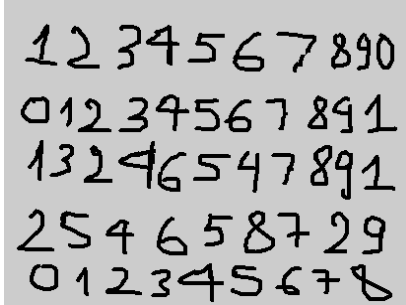 1234567890
01234567891
13246547891
254658729
012345678